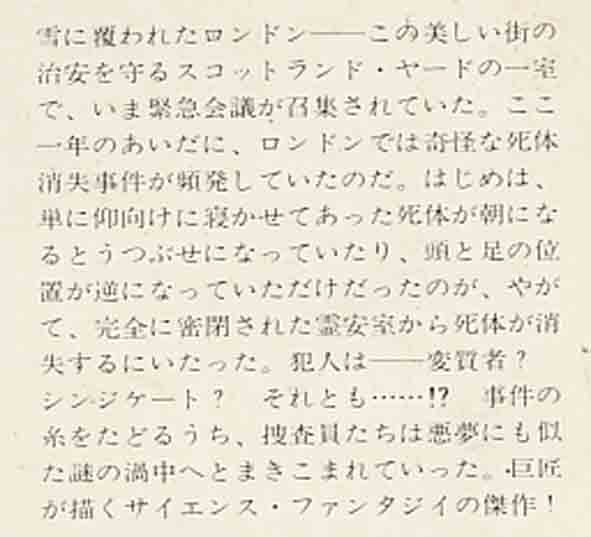 雪に覆われたロンドン──この美しい街の
治安を守るスコットランド・ヤードの一室
で、いま緊急会議が召集されていた。ここ
一年のあいだに、ロンドンでは奇怪な死体
消失事件が頻発していたのだ。はじめは、
単に仰向けに寝かせてあった死体が朝にな
るとうつぶせになっていたり、頭と足の位
置が逆になっていただけだったのが、やが
て、完全に密閉された霊安室から死体が消
失するにいたった。犯人は──変質者？
シンジケート？　それとも……!?　事件の
糸をたどるうち、捜査員たちは悪夢にも似
た謎の渦中へとまきこまれていった。巨匠
が描くサイエンス・ファンタジイの傑作！